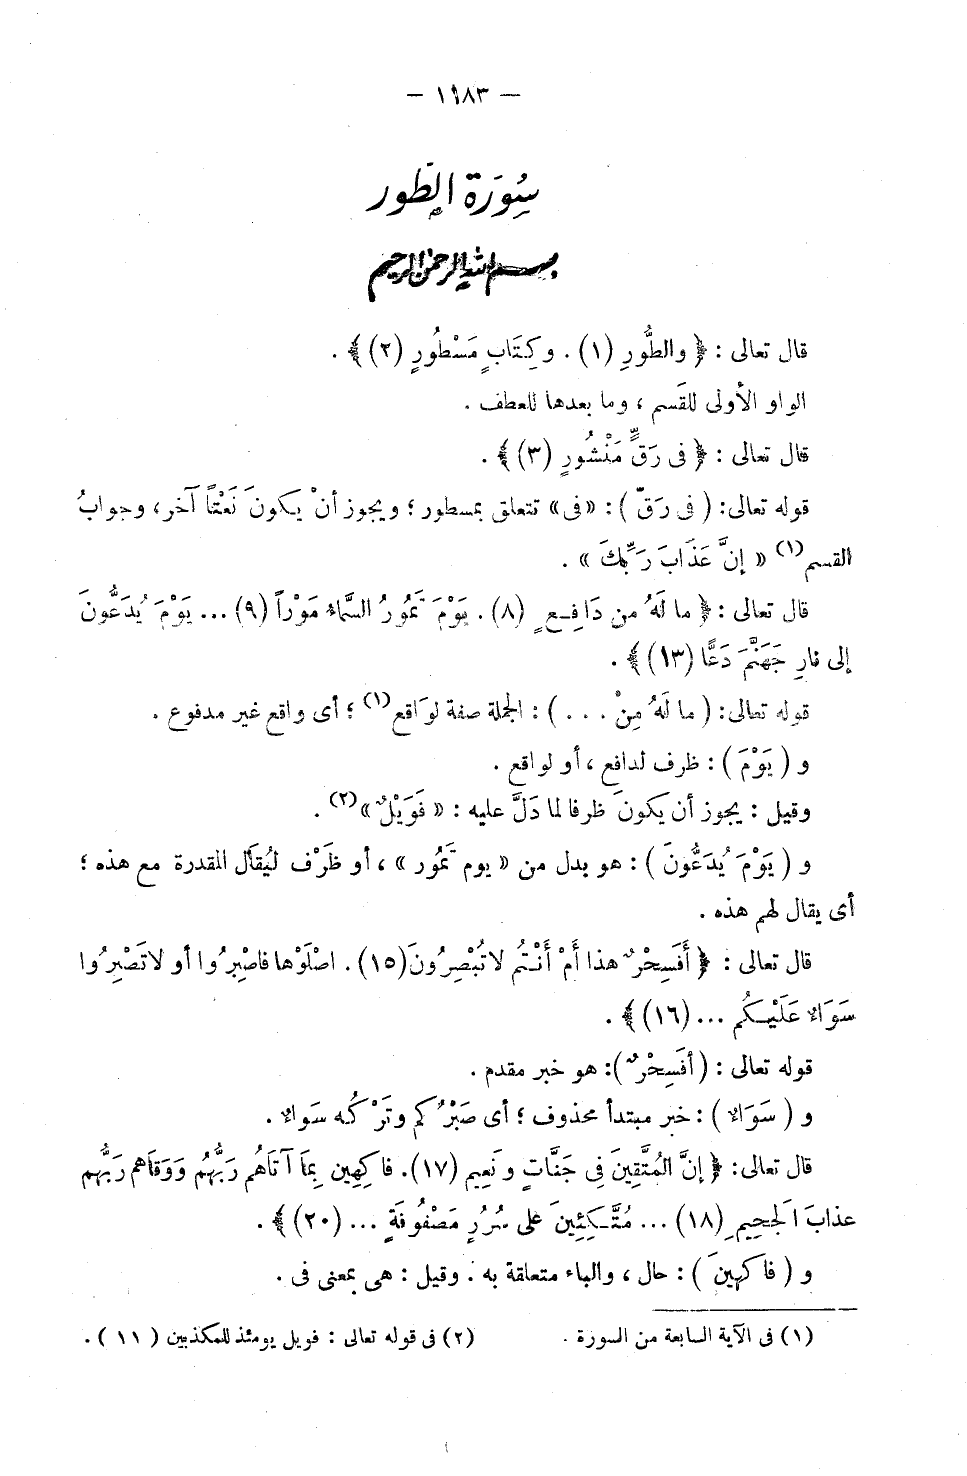 — ١١٨٣ —
سُورَة الطّور
بسم الله الرحمن الرحيم
قال تعالى : ﴿ والطُّورِ (١) . وكِتَابٍ مَسْطُورٍ (٢) ﴾ .
الواو الأولى للقَسم ، وما بعدها للعطف .
قال تعالى : ﴿ فى رَقٍّ مَنْشُورٍ (٣) ﴾ .
قوله تعالى : ( فى رَقّ ) : «فى» تتعلق بمسطور ؛ ويجوز أنْ يكونَ نَعْتاً آخر، وجوابُ
القسم(١) « إنَّ عَذَابَ رَبِّكَ » .
قال تعالى : ﴿ ما لَهُ من دَافِعٍ (٨) . يَوْمَ تَمُورُ السَّماءُ مَوْراً (٩) ... يَوْمَ يُدَعُّونَ
إلى نارِ جَهَنَّمَ دَعًّا (١٣) ﴾ .
قوله تعالى: ( ما لَهُ مِنْ . . . ) : الجملة صفة لوَاقع(١) ؛ أى واقع غير مدفوع .
و ( يَوْمَ ) : ظرف لدافع ، أو لواقع .
وقيل : يجوز أن يكونَ ظرفا لما دَلَّ عليه : « فَوَيْلٌ »(٢) .
و ( يَوْمَ يُدَعُّونَ ) : هو بدل من « يوم تَمُور » ، أو ظَرْف ليُقَال المقدرة مع هذه ؛
أى يقال لهم هذه .
قال تعالى : ﴿ أَفَسِحْرٌ هذا أَمْ أَنْتُم لا تُبْصِرُونَ (١٥) . اصْلَوْها فاصْبِرُوا أو لا تَصْبِرُوا
سَوَاءٌ عَلَيْكُم ... (١٦) ﴾ .
قوله تعالى : ( أَفَسِحْرٌ ) : هو خبر مقدم .
و ( سَوَاءٌ ) : خبر مبتدأ محذوف ؛ أى صَبْرُكم وتَرْكُه سَواءٌ .
قال تعالى: ﴿ إنَّ المُتَّقِينَ فى جَنَّاتٍ ونَعِيم (١٧). فاكِهِين بِمَا آتَاهُم رَبُّهُم وَوَقَاهم رَبُّهم
عذابَ الجَحِيمِ (١٨) ... مُتَّكِئِينَ على سُرُرٍ مَصْفُوفَةٍ ... (٢٠) ﴾ .
و ( فاكهينَ ) : حال ، والباء متعلقة به . وقيل : هى بمعنى فى .
(١) فى الآية السابعة من السورة . (٢) فى قوله تعالى : فويل يومئذ للمكذبين ( ١١ ) .